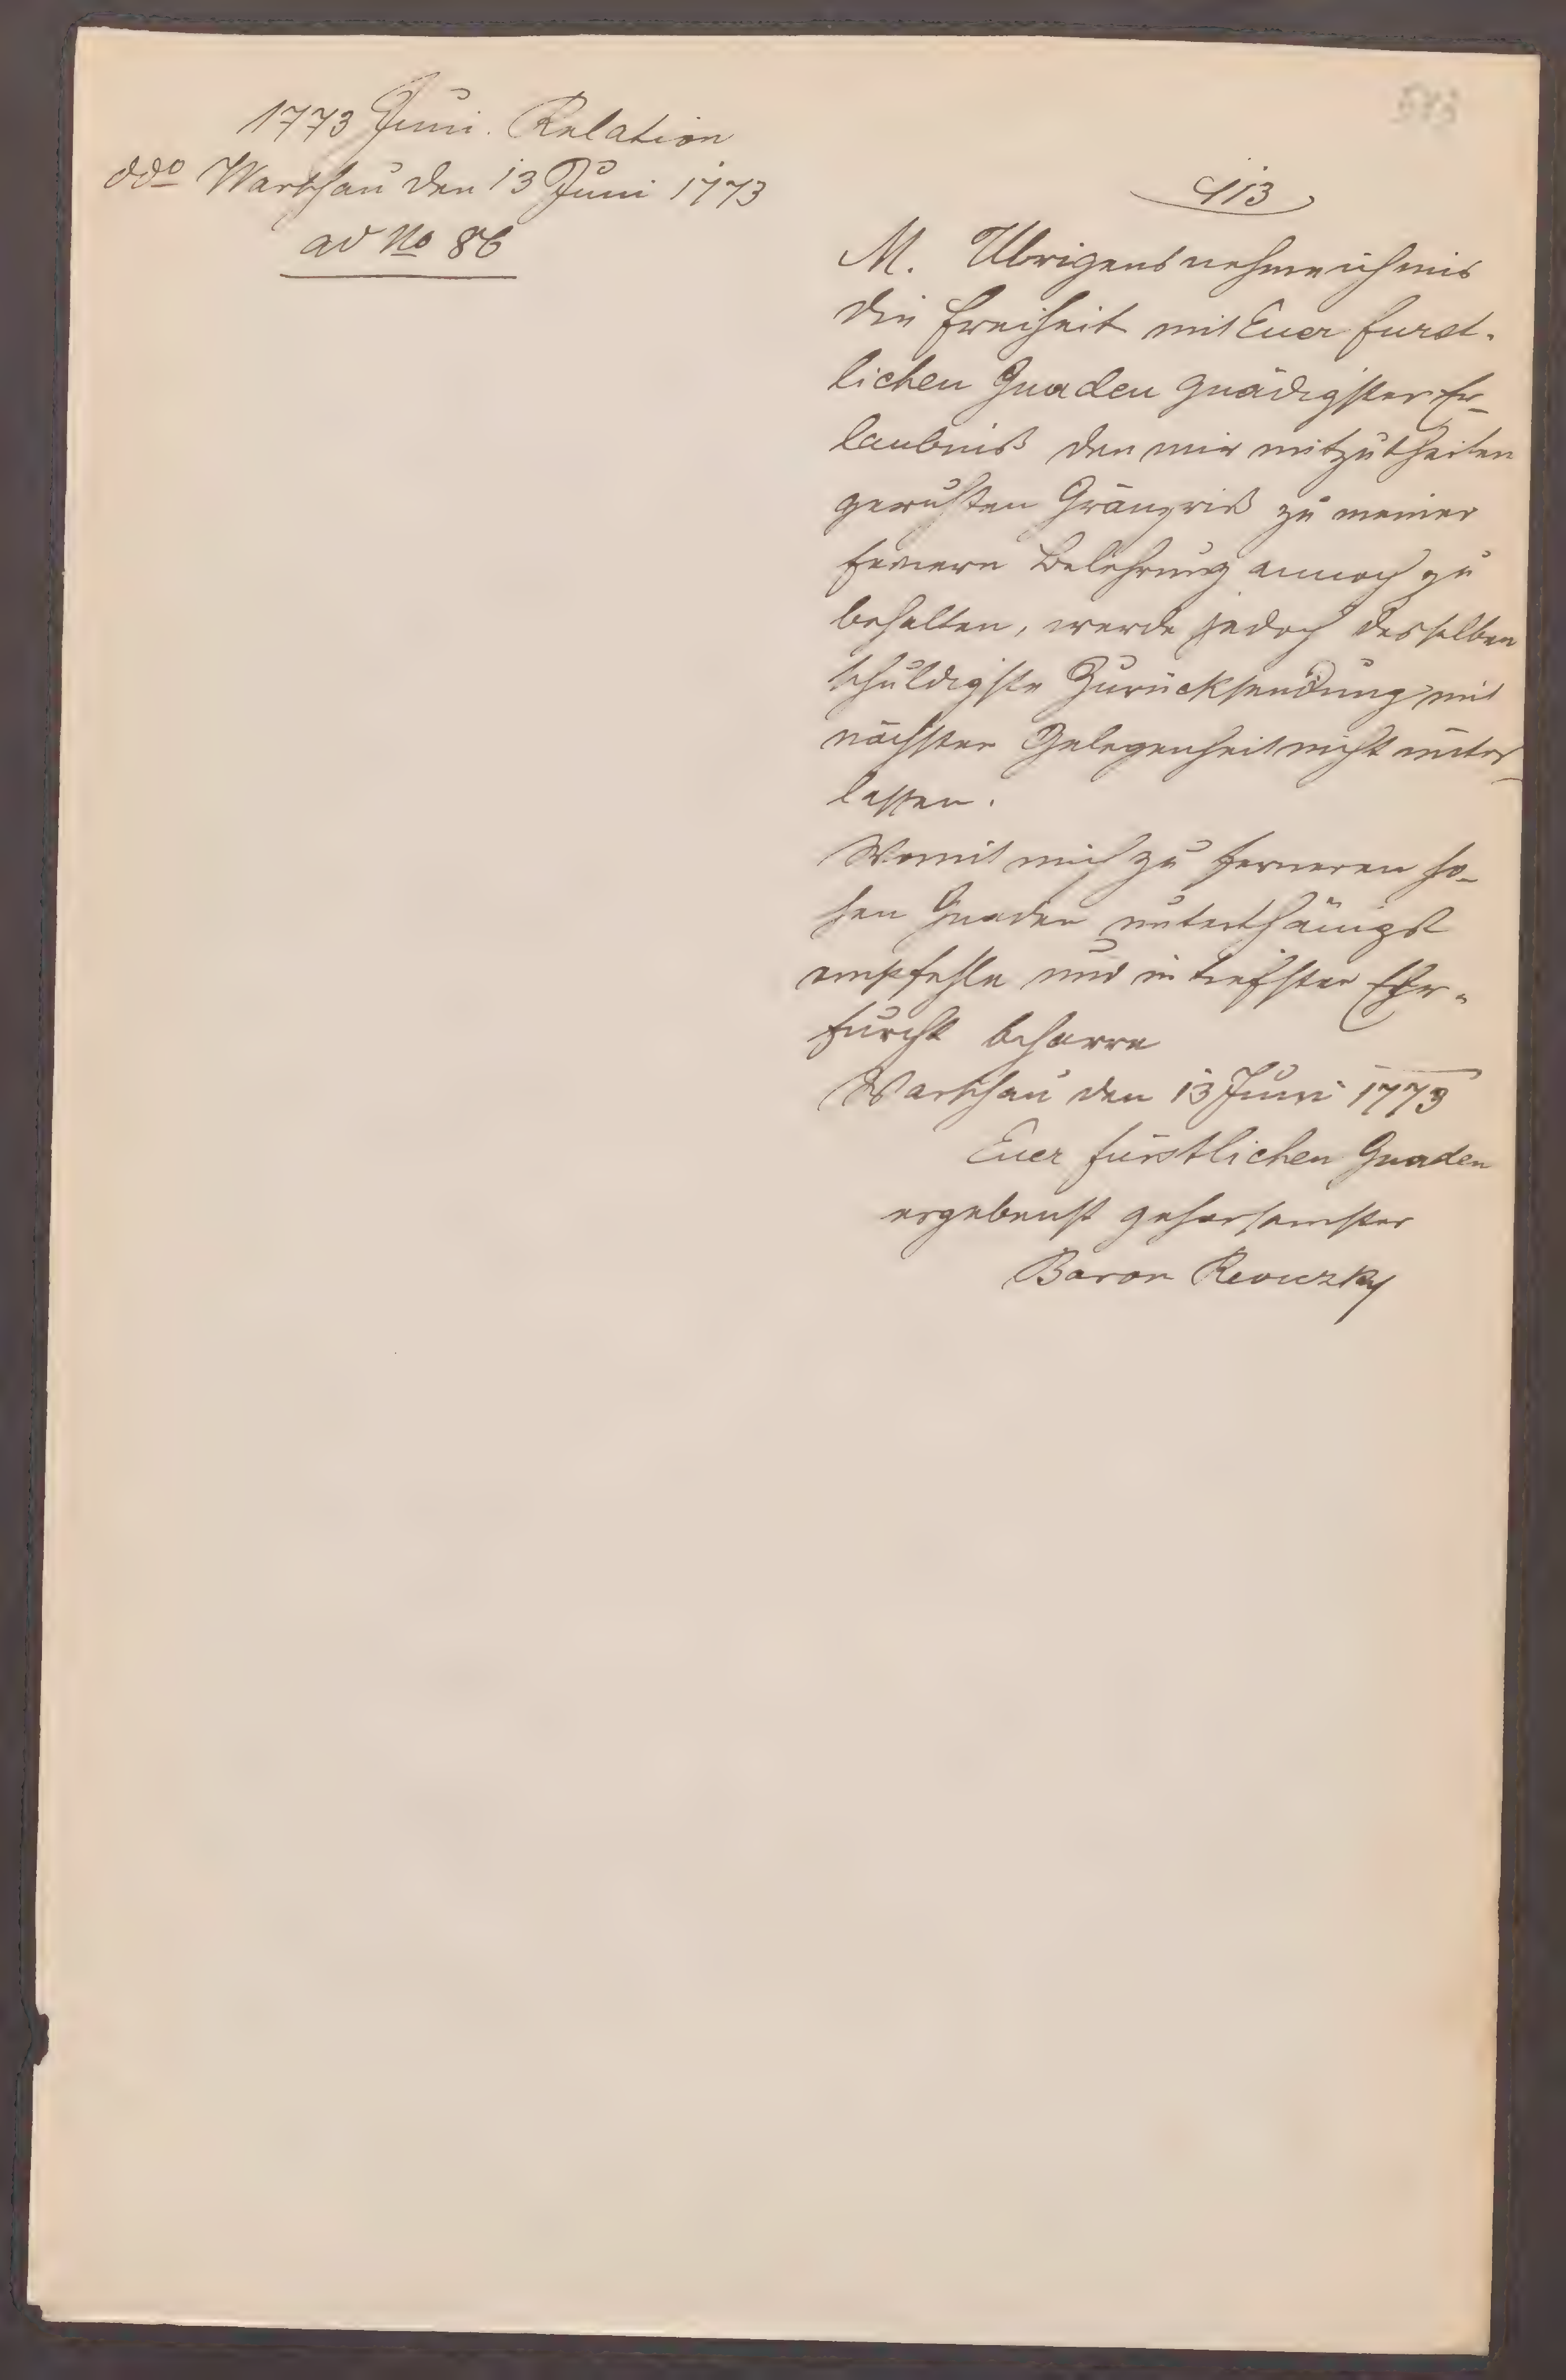 1773 Juni. Relation
ddo Warschau den 13 Juni 1773
ad No 86
413
M. Übrigens nehme ich mir
die Freiheit mit Euer furst-
lichen Gnaden gnädigster Er-
laubniß den mir mitzutheilen
geruhten Gränzriß zu meiner
fernern Belehrung annoch zu
behalten, werde jedoch desselben
schuldigste Zurücksendung mit
nächster Gelegenheit nicht unter-
lassen.
Womit mich zu ferneren ho-
hen Gnaden unterthänigst
empfehle und in tiefster Ehr-
furcht beharre
Warschau den 13 Juni 1773
Euer fürstlichen Gnaden
ergebenst gehorsamster
Baron Reviczky